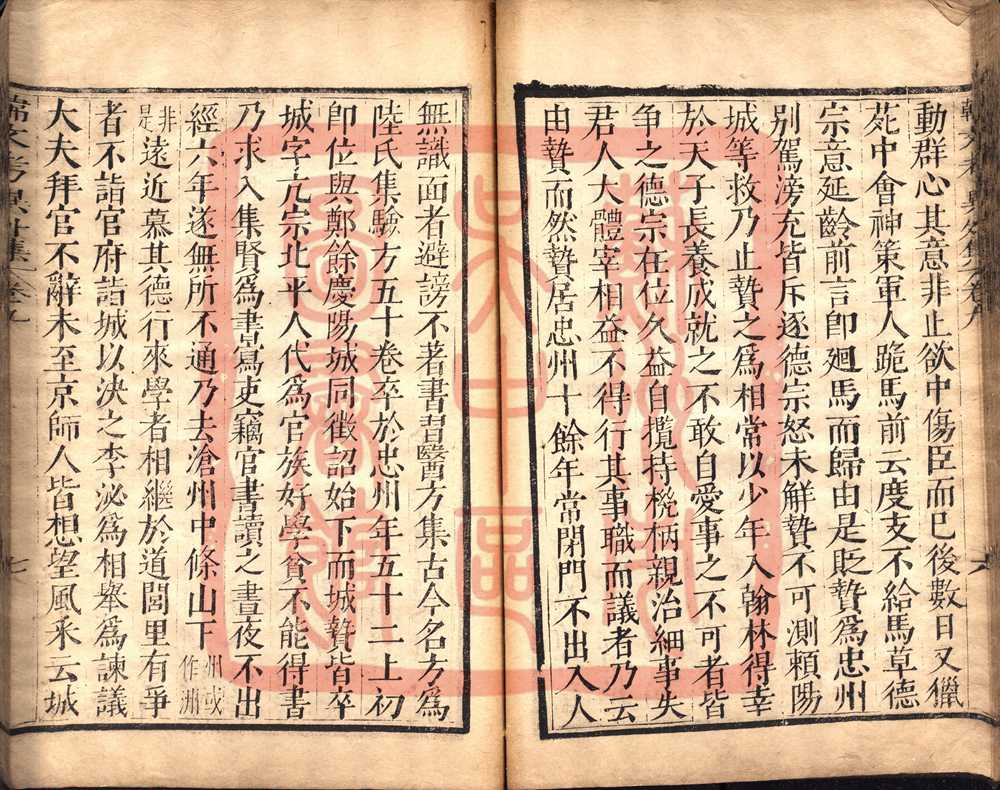 動群心其意非止欲中傷臣而已後數日又獵
苑中會神策軍人跪馬前云度支不給馬草德
宗意延齡前言卽廻馬而歸由是貶贄爲忠州
別駕滂充皆斥逐德宗怒未解贄不可測頼陽
城等救乃止贄之爲相常以少年入翰林得幸
於天子長養成就之不敢自愛事之不可者皆
争之德宗在位久益自攬持機柄親治細事失
君人大體宰相益不得行其事職而議者乃云
由贄而然贄居忠州十餘年常閉門不出入人
無識面者避謗不著書習醫方集古今名方爲
陸氏集驗方五十卷卒於忠州年五十二上初
卽位與鄭餘慶陽城同徵詔始下而城贄皆卒
城字亢宗北平人代爲官族好學貧不能得書
乃求入集賢爲書寫吏竊官書讀之晝夜不出
經六年遂無所不通乃去滄州中條山下 州或作洲
非是 遠近慕其德行來學者相繼於道閭里有爭
者不詣官府詣城以決之李泌爲相舉爲諫議
大夫拜官不辭未至京師人皆想望風采云城
七